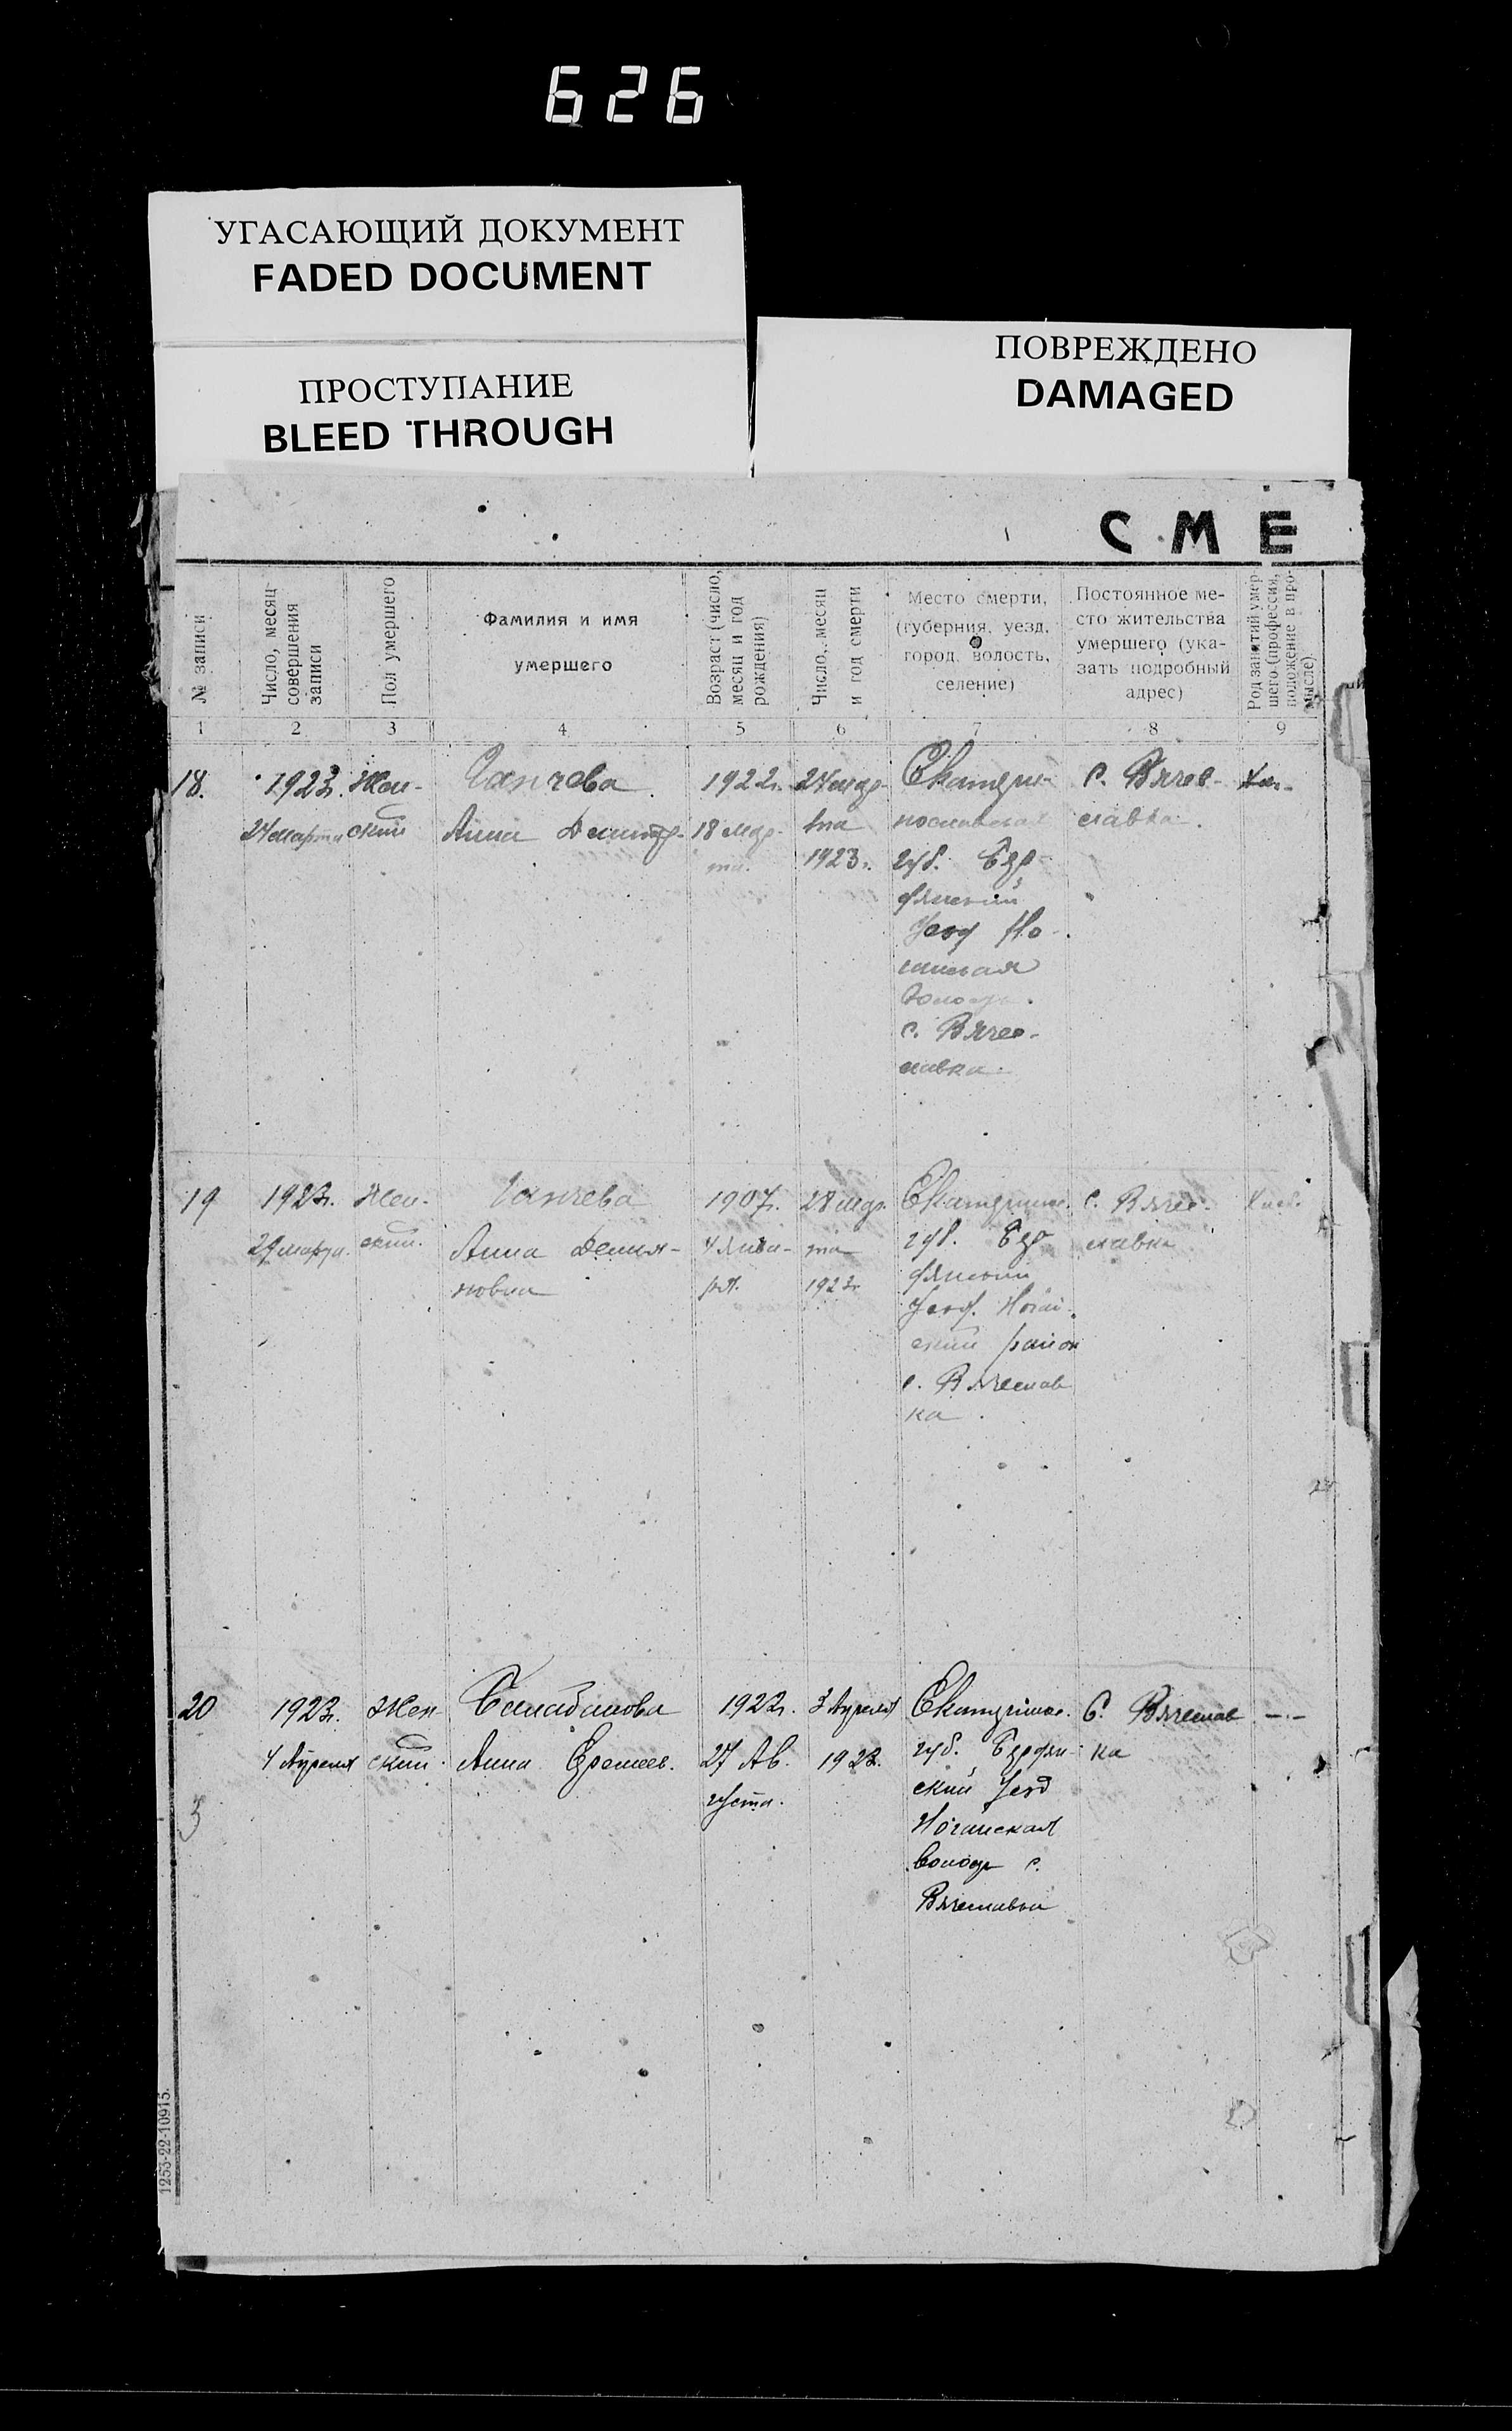 626
УГАСАЮЩИЙ ДОКУМЕНТ
FADED DOCUMENT
ПРОСТУПАНИЕ
BLEED THROUGH
ПОВРЕЖДЕНО
DAMAGED
С М Е
№ записи
Число, месяц
совершения
записи
Пол умершего
Фамилия и имя
умершего
Возраст (число,
месяц и год
рождения)
Число, месяц
и год смерти
Место смерти,
(губерния, уезд,
город, волость,
селение)
Постоянное ме-
сто жительства
умершего (ука-
зать подробный
адрес)
Род занятий умер
шего (профессия,
положение в про-
мысле)
1 2 3 4 5 6 7 8 9
18.
1923г.
24 марта
Жен-
ский
Ганчева
Анна Димитр-
1922г.
18 мар-
та.
24 мар-
та
1923г.
Екатери-
нославская
губ. Бер-
дянский
Уезд Но-
волость.
с. Вячес-
лавка.
с. Вячес-
лавка.
19
1923г.
29 марта.
Жен-
ский.
Ганчева
Анна Демья-
новна
1907г.
4 янва-
ря.
28 мар-
та
1923г.
Екатеринос.
губ. Бер
дянский
Уезд. Ногай-
ский район
с. Вячеслав
ка.
с. Вячес-
лавка
Хлеб.
20
1923г.
4 Апреля
Жен
ский.
Балабанова
Анна Еремеев.
1922г.
27 Ав.
густа.
3 Апреля
1923г.
Екатеринос.
губ. Бердян-
ский Уезд
Ногайская
волость с.
Вячеславка
С. Вячеслав
ка
-·-
3
1253-22-10915.